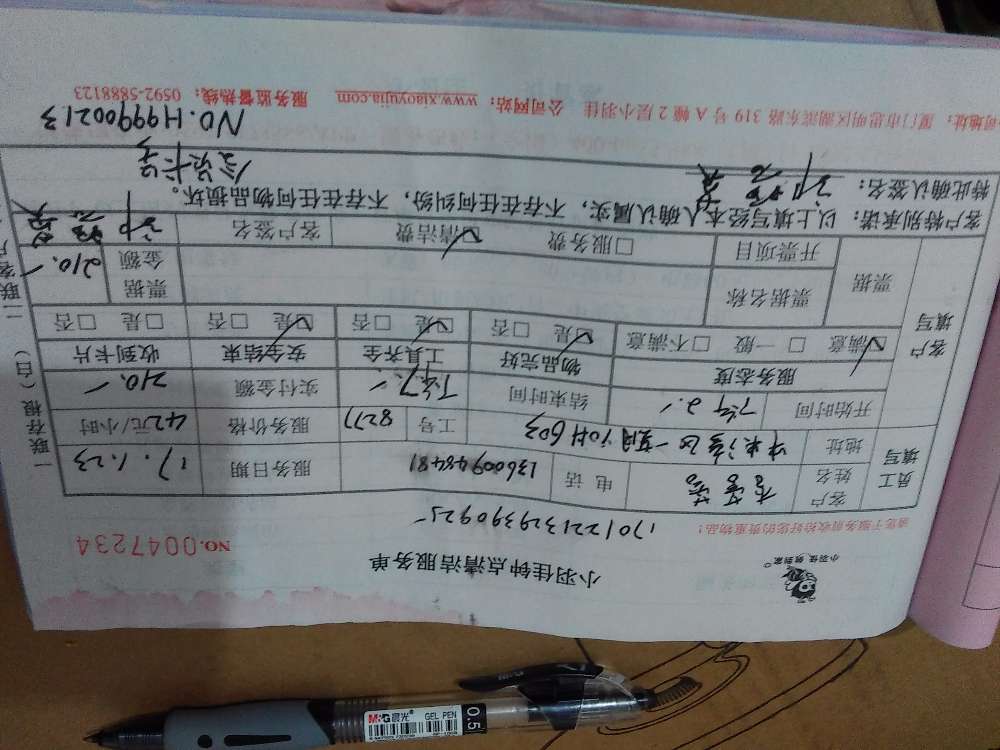 小羽佳钟点清洁服务单
小羽佳 做到家
NO.0047234
请您于服务前收拾好您的贵重物品!
1701221329390925
员工填写
客户姓名
电话 13600948481
服务日期 17.1.23
地址
603
工号 8277
服务价格 42元/小时
开始时间 下午2.
结束时间 下午7.
实付金额 210.
客户填写
服务态度 物品完好 工具齐全 安全结束 收到卡片
☑满意 □一般 □不满意 ☑是 □否 ☑是 □否 ☑是 □否 □是 □否
票据
票据名称
票据金额 210.
开票项目 □服务费 ☑清洁费 客户签名
客户特别承诺:以上填写经本人确认属实,不存在任何纠纷,不存在任何物品损坏。
特此确认签名:
会员卡号
NO.H99900213
司地址:厦门市思明区湖滨东路 319 号 A 幢 2 层小羽佳 公司网站:www.xiaoyujia.com 服务监督热线:0592-5888123
一联存根(白)
二联客户
M&G 晨光 GEL PEN 0.5